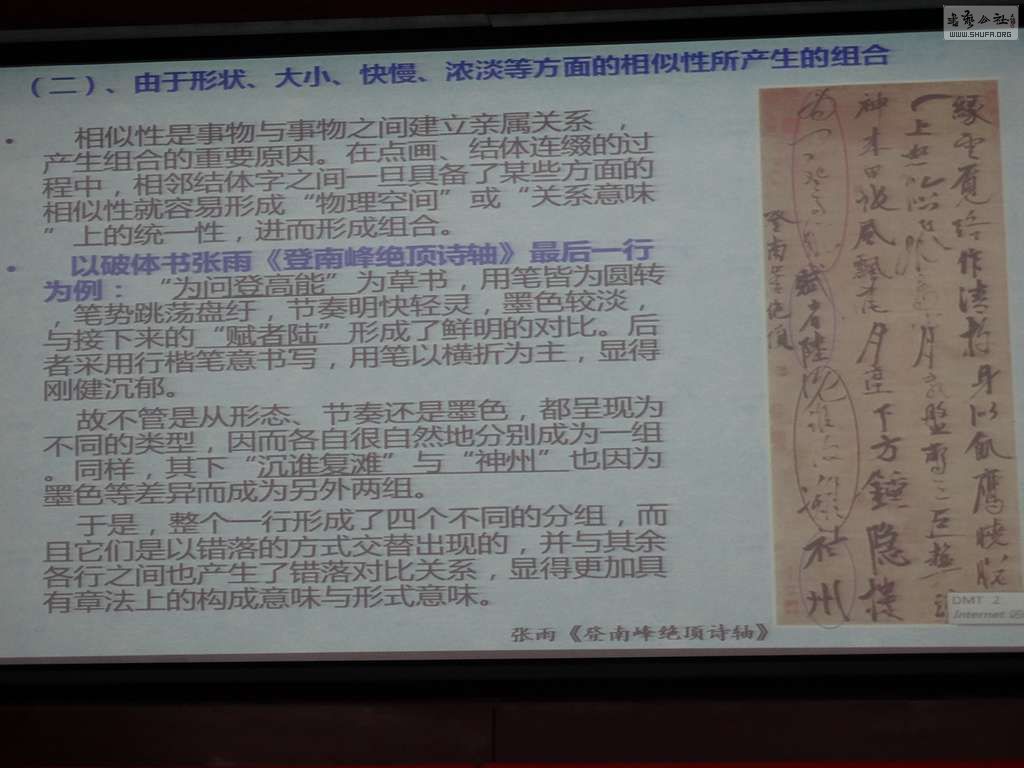 書藝公社
WWW.SHUFA.ORG
（二）、由于形状、大小、快慢、浓淡等方面的相似性所产生的组合
• 相似性是事物与事物之间建立亲属关系 ，
产生组合的重要原因。在点画、结体连缀的过
程中，相邻结体字之间一旦具备了某些方面的
相似性就容易形成“物理空间”或“关系意味
”上的统一性，进而形成组合。
• 以破体书张雨《登南峰绝顶诗轴》最后一行
为例：“为问登高能”为草书，用笔皆为圆转
，笔势跳荡盘纡，节奏明快轻灵，墨色较淡，
与接下来的“赋者陆”形成了鲜明的对比。后
者采用行楷笔意书写，用笔以横折为主，显得
刚健沉郁。
故不管是从形态、节奏还是墨色，都呈现为
不同的类型，因而各自很自然地分别成为一组
。同样，其下“沉谁复滩”与“神州”也因为
墨色等差异而成为另外两组。
于是，整个一行形成了四个不同的分组，而
且它们是以错落的方式交替出现的，并与其余
各行之间也产生了错落对比关系，显得更加具
有章法上的构成意味与形式意味。
张雨《登南峰绝顶诗轴》
DMT 2
Internet